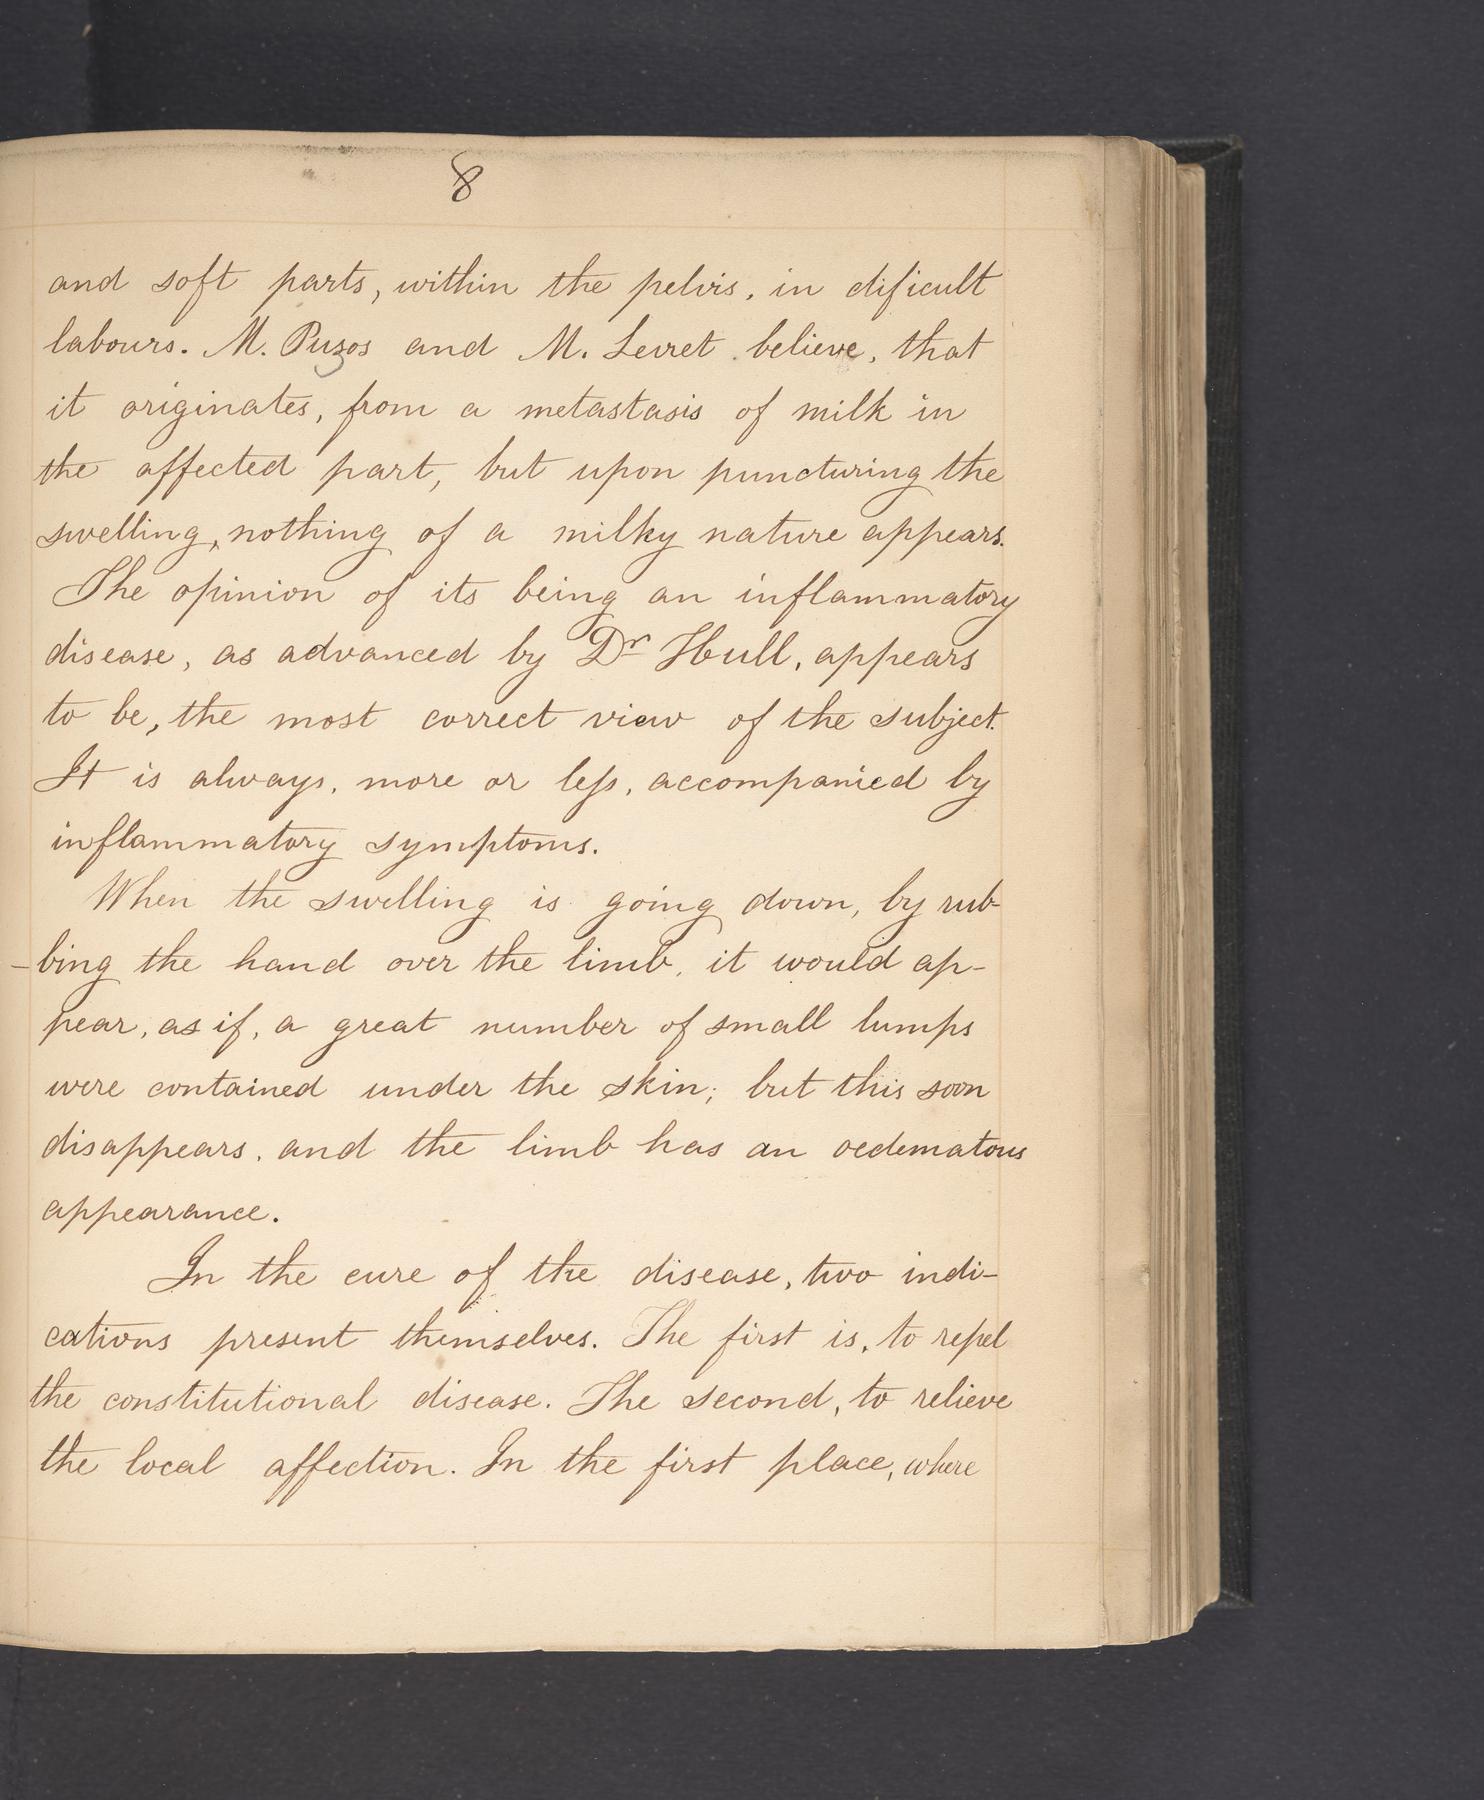 8
and soft parts, within the pelvis, in dificult
labours. M. Puzos and M. Levret believe, that
it originates, from a metastasis of milk in
the affected part, but upon puncturing the
swelling, nothing of a milky nature appears.
The opinion of its being an inflammatory
disease, as advanced by Dr Hull, appears
to be, the most correct view of the subject.
It is always, more or less, accompanied by
inflammatory symptoms.
When the swelling is going down, by rub-
-bing the hand over the limb, it would ap-
pear, as if, a great number of small lumps
were contained under the skin; but this soon
disappears, and the limb has an oedematous
appearance.
In the cure of the disease, two indi-
cations present themselves. The first is, to repel
the constitutional disease. The second, to relieve
the local affection. In the first place, where